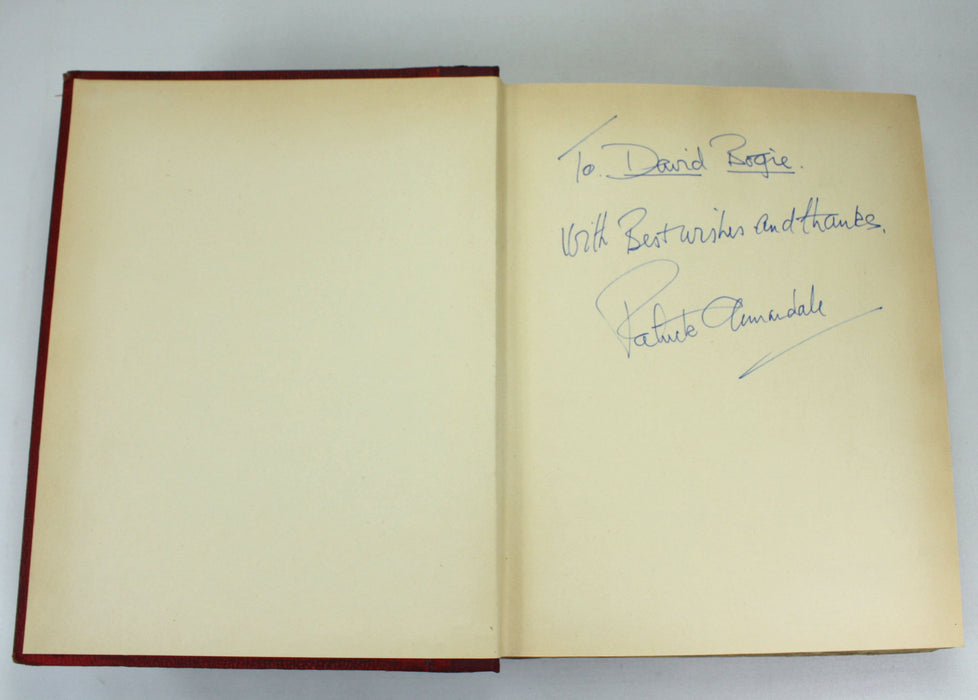 To. David Bogie.
With Best wishes and thanks.
Patrick Annandale